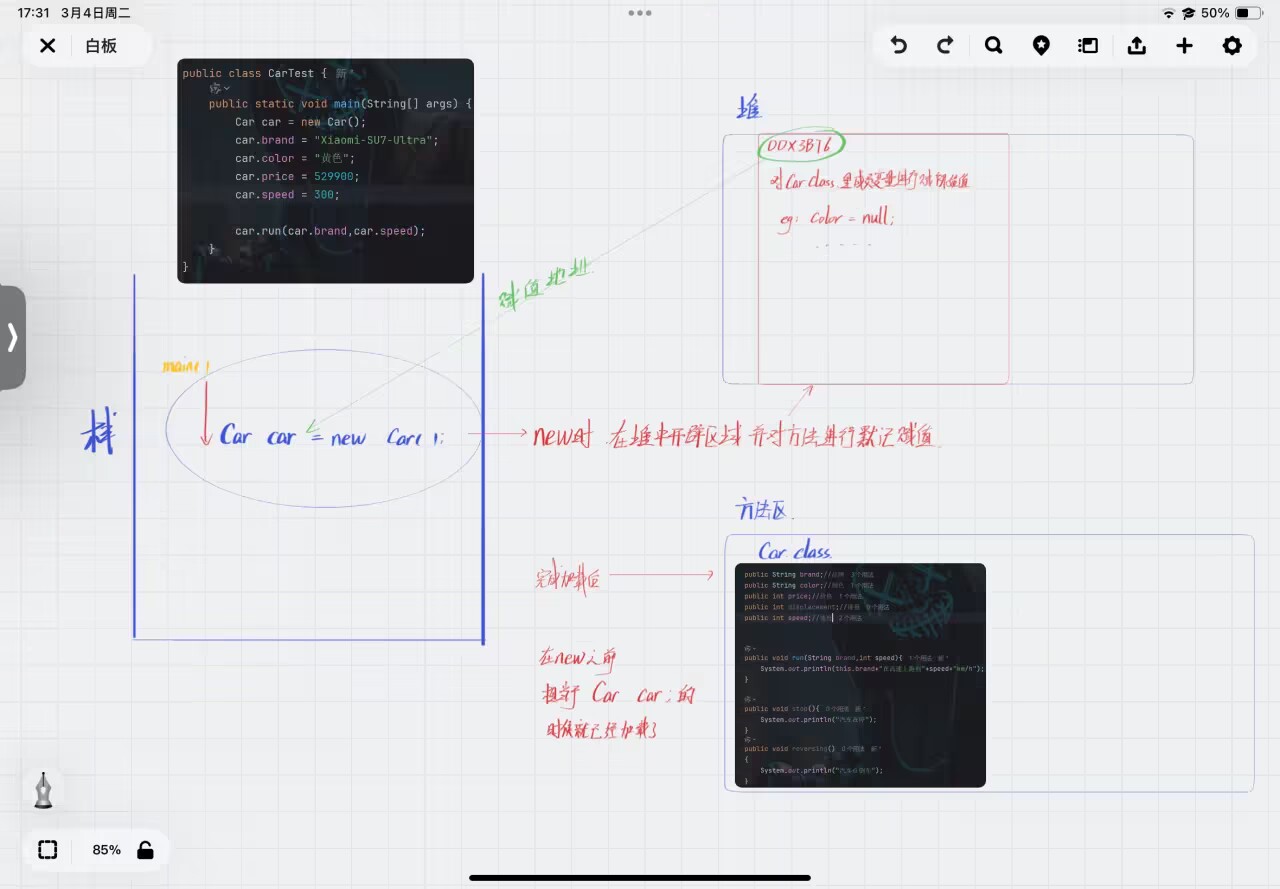 17:31 3月4日周二
50%
白板
public class CarTest { 新 *
public static void main(String[] args) {
Car car = new Car();
car.brand = "Xiaomi-SU7-Ultra";
car.color = "黄色";
car.price = 529900;
car.speed = 300;
car.run(car.brand,car.speed);
}
}
堆
DDX3B76
对Car class 里成员变量进行默认赋值
eg: color = null;
. . . . .
赋值地址
main()
栈
Car car = new Car();
new时 在堆中开辟区域 并对方法进行默认赋值
方法区
Car.class
完成加载后
在new之前
执行 Car car; 的
时候就已经加载了
public String brand;//品牌 2个用法
public String color;//颜色 1个用法
public int price;//价格 1个用法
public int displacement;//排量 0个用法
public int speed;//速度 2个用法
public void run(String brand,int speed){ 1个用法 新 *
System.out.println(this.brand+"在高速上跑到"+speed+"km/h");
}
public void stop(){ 0个用法 新 *
System.out.println(
}
public void reversing() 0个用法 新 *
{
System.out.println(
}
85%